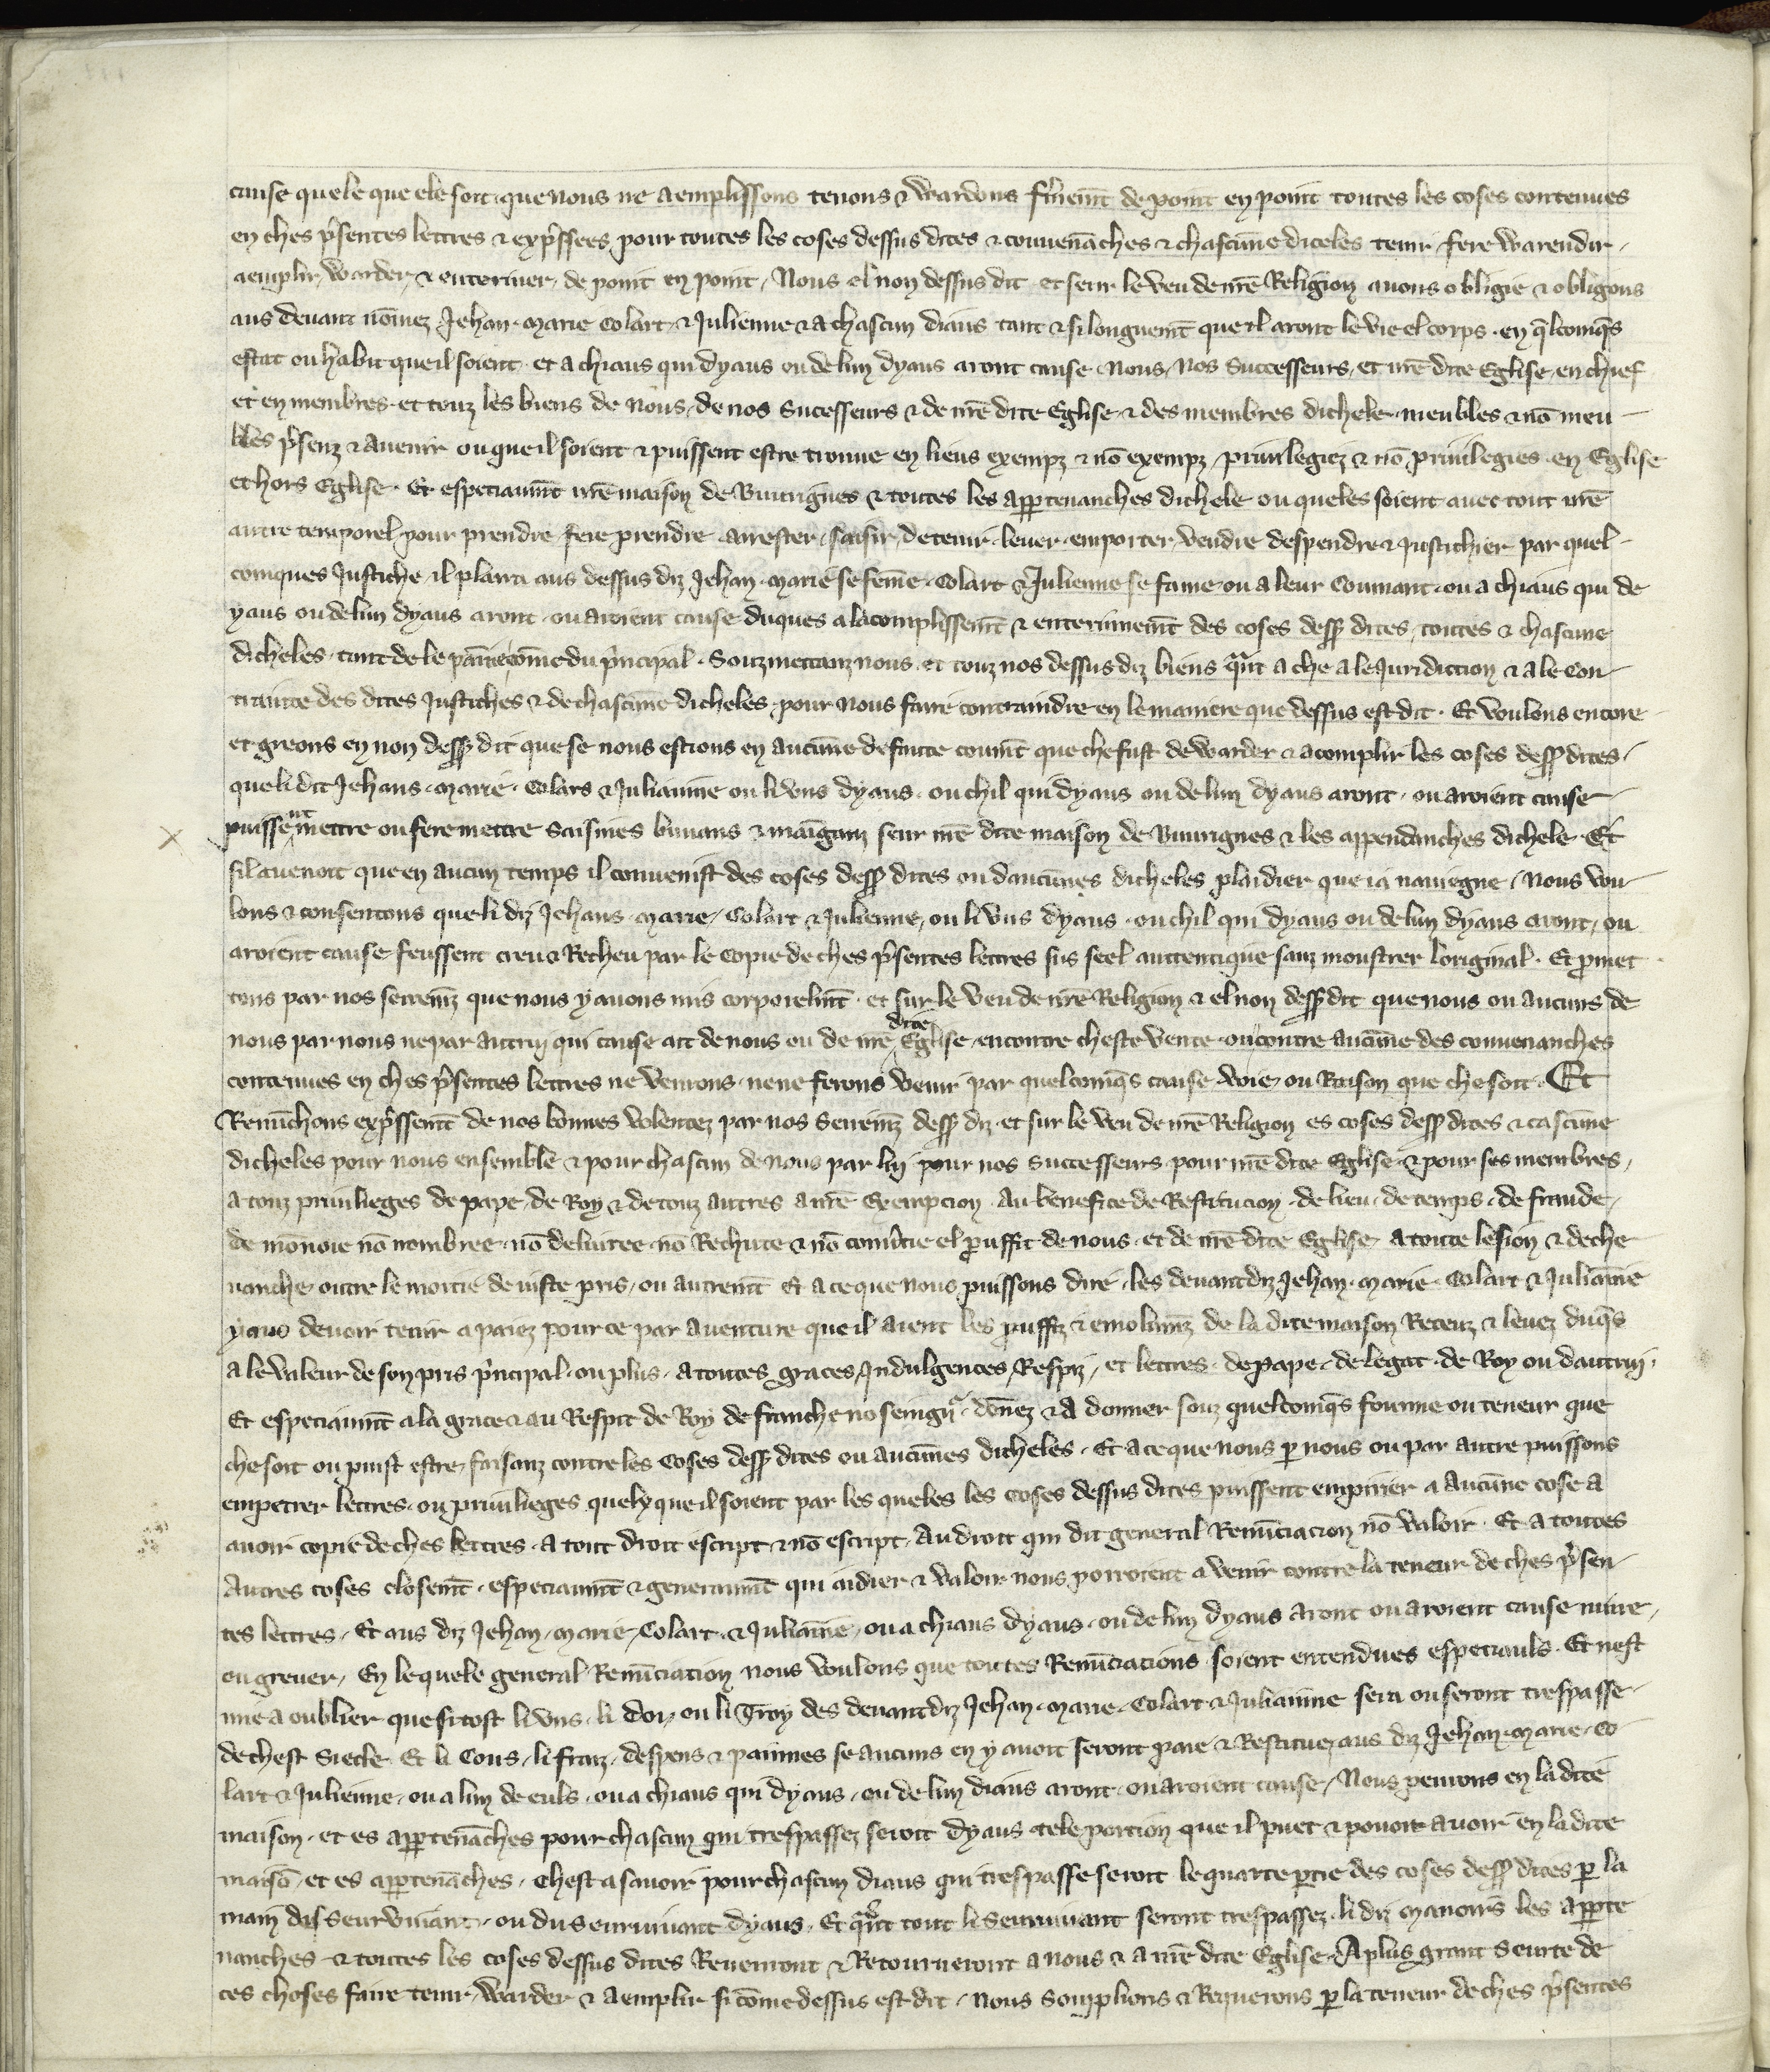 cause quele que ele soit que nous ne aemplissons tenons & wardons f̃mem̃t de point en point toutes les coses contenues
en ches p̃sentes lettres & exp̃ssees pour toutes les coses dessus dites & couvenãches & chascũne diceles tenir fere warendir
aemplir warder & enteriner de point en point / Nous el non dessus dit et seur le veu de nr̃e Religion avons obligie & obligons
aus devant nõmez Jehan Marie Colart & Julienne & a chascun diaus tant & si longuem̃t que il aront le vie el corps en q̃lcomq̃s
estat ou habit que il soient et a chiaus qui dyaus ou de lun dyaus aront cause Nous / Nos Successeurs / et nr̃e dite Eglise en chief
et en membres et touz les biens de Nous / de nos Sucesseurs & de nr̃e dite Eglise & des membres dichele meubles & nõ meu
bles p̃senz & avenir ou que il soient & puissent estre trouve en lieus exempz & nõ exempz privilegiez & nõ privilegies en Eglise
et hors Eglise Et especiaum̃t nr̃e maison de Buurignes & toutes les app̱tenanches dichele ou queles soient avec tout nr̃e
autre temporel pour prendre fere prendre arrester saisir detenir lever emporter vendre despendre & justichier par quel
comques Justiche il plaira aus dessus diz Jehan Marie se fem̃e Colart & Julienne se fame ou a leur Coumant ou a chiaus qui de
yaus ou de lun dyaus aront ou aroient cause duques a lacomplissem̃t & enterinem̃t des coses dess9 dites toutes & chascune
dicheles tant de le pãine cõme du p̃ncipal Souzmettanz nous et touz nos dessus diz biens q̃nt a che a le Juridiction & a le Con
trainte des dites Justiches & de chascũne dicheles pour nous faire contraindre en le maniere que dessus est dit Et voulons encore
et greons en non dess9 dit que se nous estions en aucũne defaute coum̃t que che fust de warder & acomplir les coses dess9 dites
que li dit Jehans Marie Colars & Julianne ou li vns dyaus ou chil qui dyaus ou de lun dyaus aront ou aroient cause
puissent mettre ou fere mettre Saisines buvans & maĩganz seur nr̃e dite maison de Buurignes & les appendanches dichele Et
sil avenoit que en aucun temps il convenist des coses dess9 dites ou daucũnes dicheles plaidier que ia naviegne / Nous vou
lons & consentons que li diz Jehans Marie / Colart & Julienne / ou li vns dyaus ou chil qui dyaus ou de lun dyaus aront / ou
aroient cause feussent creu & Recheu par le copie de ches p̃sentes lettres sus seel auttentique sanz moustrer loriginal Et p̱met
tons par nos serrem̃z que nous y avons mis corporelm̃t et sur le veu de nr̃e Religion & el non dess9 dit que nous ou aucuns de
nous par nous ne par autrui qui cause ait de nous ou de nr̃e dite Eglise encontre cheste vente ou contre aucũne des convenanches
contenues en ches p̃sentes lettres ne venrons ne ne ferons venir par quelcomq̃s cause voie ou Raison que che soit Et
Renũchons exp̃ssem̃t de nos bonnes volentez par nos Serrem̃z dess9 diz et sur le veu de nr̃e Religion es coses dess9 dites & cascũne
dicheles pour nous ensemble & pour chascun de nous par luy pour nos Successeurs pour nr̃e dite Eglise & pour ses membres
a touz privilieges de pape de Roy & de touz autres a nr̃e Exempcion au benefice de Restitucion de lieu de temps de fraude
de mõnoie nõ nombree nõ delivree nõ Rechute & nõ convr̃tie el p̱uffit de nous et de nr̃e dite Eglise a toute lesion & deche
vanche outre le moitie de iuste pris ou autrem̃t Et a ce que nous puissons dire les devant diz Jehan Marie Colart & Juliãne
yaus devoir tenir a paiez pour ce par aventure que il aient les p̱uffiz & emolum̃z de la dite maison Receuz & levez duq̃s
a le valeur de son pris p̃ncipal ou plus a toutes graces Indulgences Respiz et lettres de pape de legat de Roy ou dautrui
Et especiaum̃t a la grace & au Respit de Roy de franche no seingn̄r dõnez & a donner souz quelcomq̃s fourme ou teneur que
che soit ou puist estre faisanz contre les Coses dess9 dites ou aucũnes dicheles Et a ce que nous p̱ nous ou par autre puissons
empetrer lettres ou privilieges quelx que il soient par les queles les coses dessus dites puissent empirier a aucũne cose a
avoir copie de ches lettres a tout droit escript & nõ escript au droit qui dit general Renũciacion nõ valoir Et a toutes
autres coses closem̃t especiaum̃t & generaum̃t qui aidier & valoir nous porroient a venir contre la teneur de ches p̃sen
tes lettres Et aus diz Jehan Marie Colart & Juliãne ou a chiaus dyaus ou de lun dyaus aront ou aroient cause nuire
ou grever / En lequele general Renũciation nous voulons que toutes Renũciations soient entendues especiauls Et nest
mie a oublier que si tost li vns li doy ou li Troy des devant diz Jehan Marie Colart & Julianne sera ou seront trespasse
de chest Siecle Et li Cous li fraiz despens & painnes se aucuns en y avoit seront paie & Restituez aus diz Jehan Marie Co
lart & Julienne ou a lun de euls ou a chiaus qui dyaus ou de lun diaus aront ou aroient cause / Nous penrons en la dite
maison et es app̱tenãches pour chascun qui trespassez seroit dyaus tele portion que il puet & pouoit avoir en la dite
maisõ et es app̱tenãches chest a savoir pour chascun diaus qui trespasse seroit le quarte p̱tie des coses dess9 dites p̱ la
main du Seurvivant ou du Seurvivant dyaus Et q̃nt tout li Seurvivant seront trespassez li diz Manoirs les app̱te
nanches & toutes les coses dessus dites Revenront & Retourneront a nous & a nr̃e dite Eglise A plus grant Seurte de
ces choses faire tenir warder & aemplir si cõme dessus est dit Nous Souplions & Requerons p̱ la teneur de ches p̃sentes